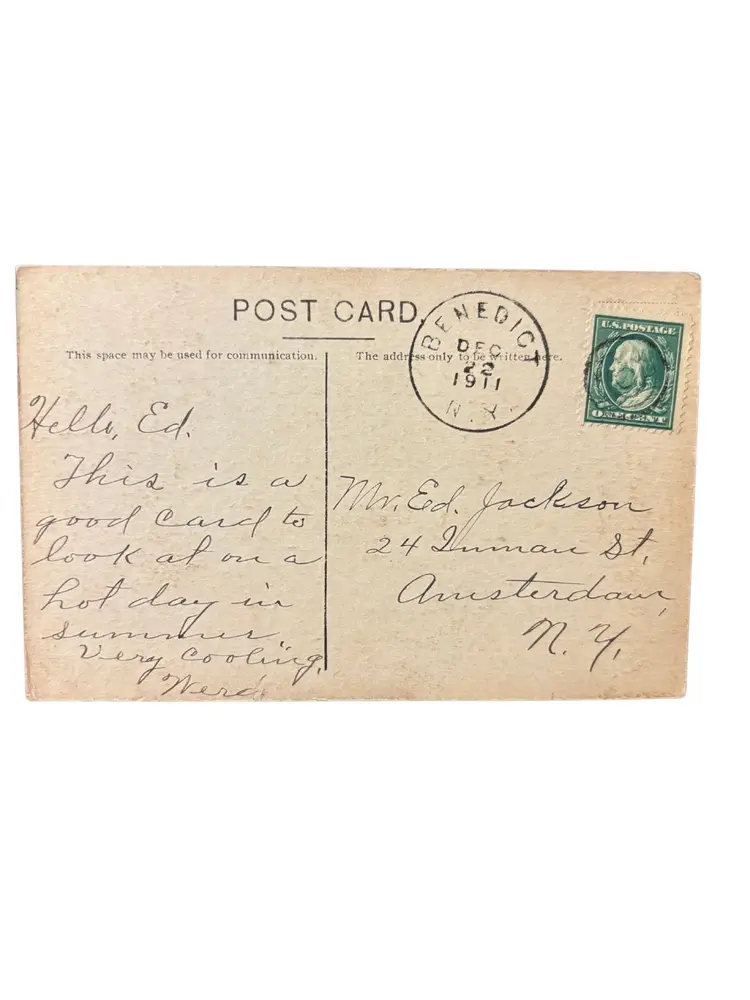 POST CARD.
This space may be used for communication.
The address only to be written here.
BENEDICT
DEC
22
1911
N.Y.
U.S. POSTAGE
ONE CENT
Hello, Ed.
This is a
good card to
look at on a
hot day in
summer
Very cooling.
Mr. Ed. Jackson
24 Inman St,
Amsterdam,
N. Y.